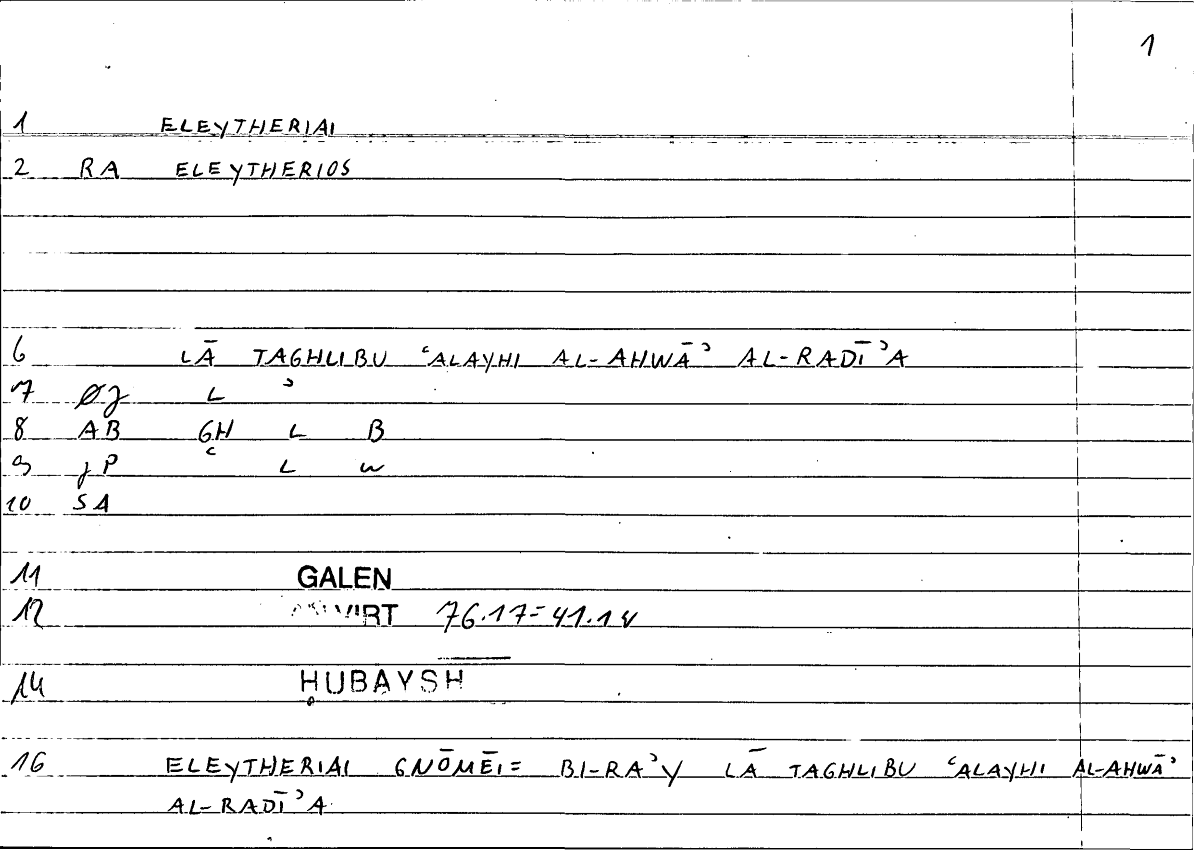 1
1 ELEYTHERIAI
2 RA ELEYTHERIOS
6 LĀ TAGHLIBU ʿALAYHI AL-AHWĀʾ AL-RADĪʾA
7 L ʾ
8 AB GH L B
9 JP ʿ L W
10 SA
11 GALEN
12 VIRT 76.17=41.14
14 ḤUBAYSH
16 ELEYTHERIAI GNŌMĒI= BI-RAʾY LĀ TAGHLIBU ʿALAYHI AL-AHWĀʾ
AL-RADĪʾA